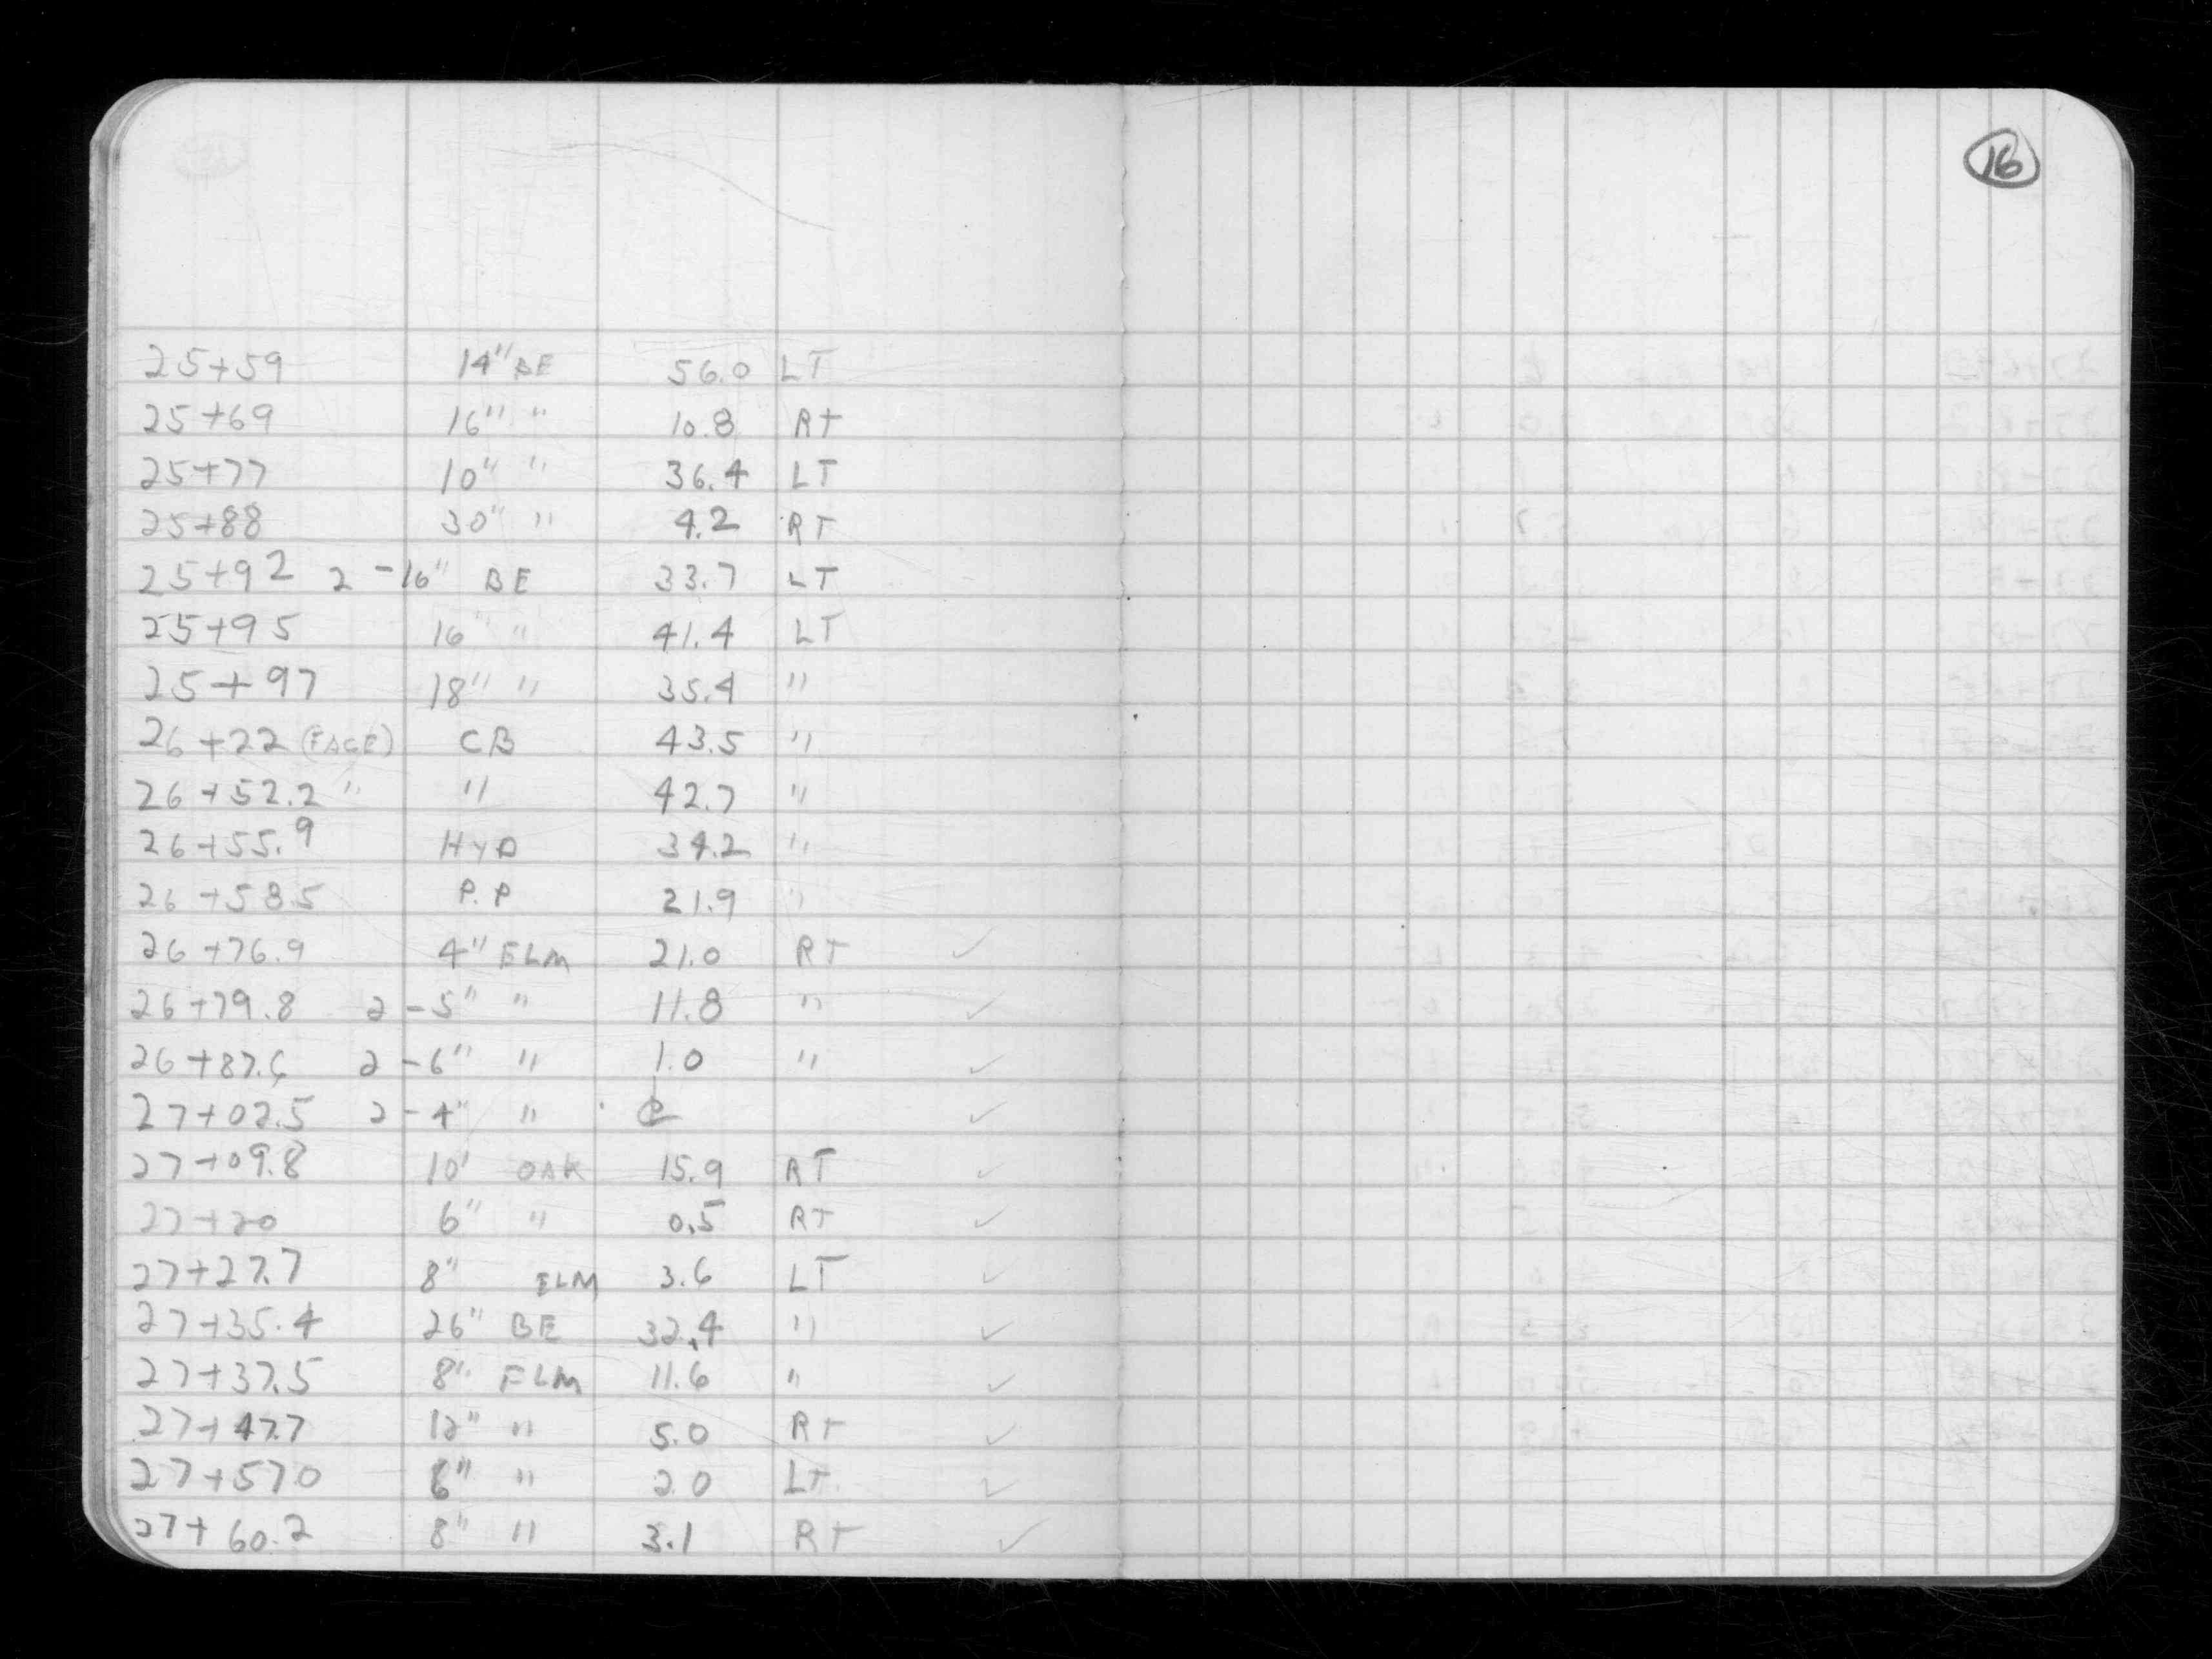 16
25+59 14" BE 56.0 LT
25+69 16" " 10.8 RT
25+77 10" " 36.4 LT
25+88 30" " 4.2 RT
25+92 2-16" BE 33.7 LT
25+95 16" " 41.4 LT
25+97 18" " 35.4 "
26+22 (FACE) CB 43.5 "
26+52.2 " " 42.7 "
26+55.9 HYD 34.2 "
26+58.5 P.P 21.9 "
26+76.9 4" ELM 21.0 RT ✓
26+79.8 2-5" " 11.8 " ✓
26+87.6 2-6" " 1.0 " ✓
27+02.5 2-4" " ℄ ✓
27+09.8 10' OAK 15.9 RT ✓
27+20 6" " 0.5 RT ✓
27+27.7 8" ELM 3.6 LT ✓
27+35.4 26" BE 32.4 " ✓
27+37.5 8" ELM 11.6 " ✓
27+47.7 12" " 5.0 RT ✓
27+57.0 6" " 2.0 LT ✓
27+60.2 8" " 3.1 RT ✓